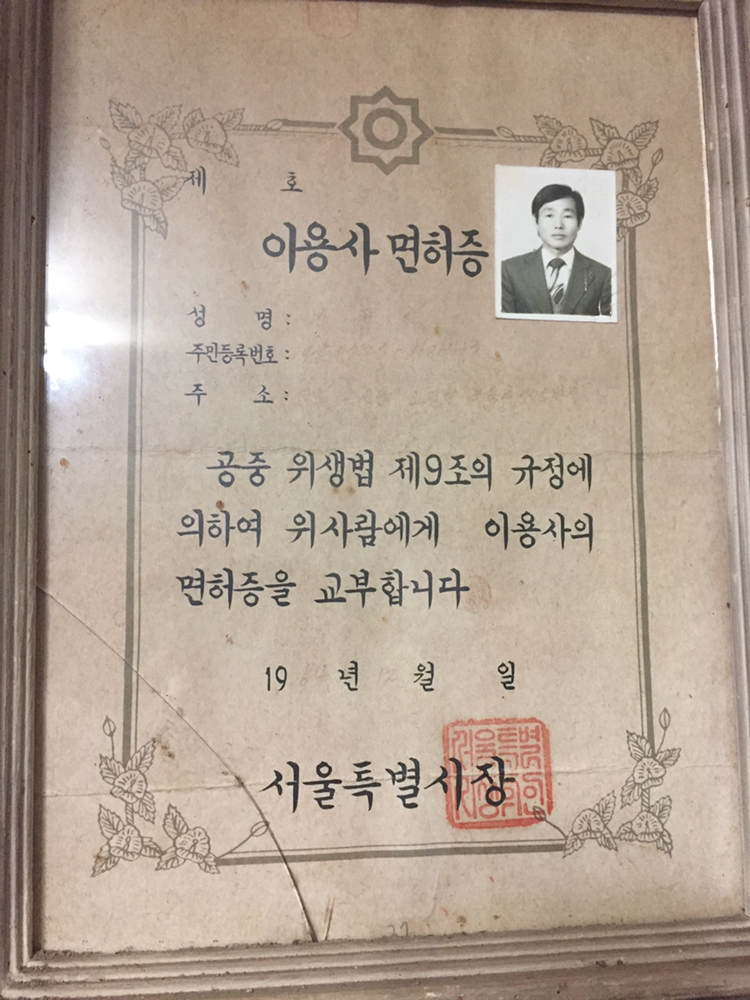 제 호
이용사 면허증
성 명 :
주민등록번호 :
주 소 :
공중 위생법 제9조의 규정에
의하여 위사람에게 이용사의
면허증을 교부합니다
19 년 월 일
서울특별시장